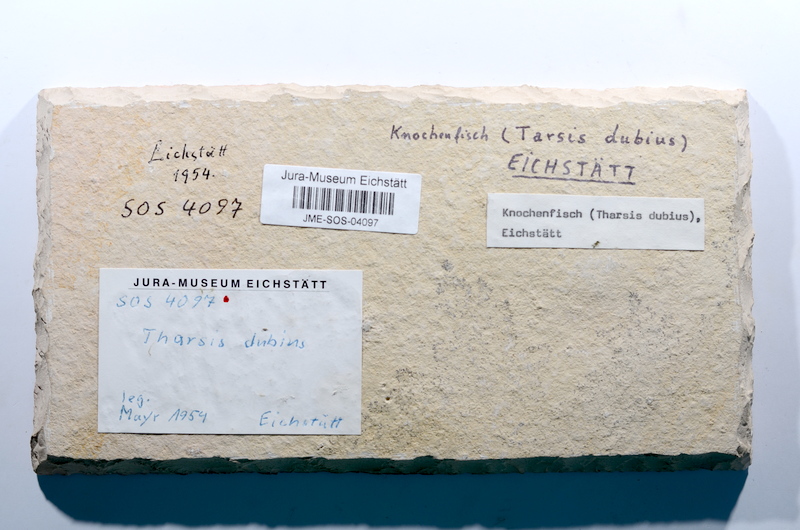 Eichstätt
1954.
SOS 4097
Jura-Museum Eichstätt
JME-SOS-04097
Knochenfisch (Tarsis dubius)
EICHSTÄTT
Knochenfisch (Tharsis dubius),
Eichstätt
JURA-MUSEUM EICHSTÄTT
SOS 4097
Tharsis dubius
leg.
Mayr 1954 Eichstätt